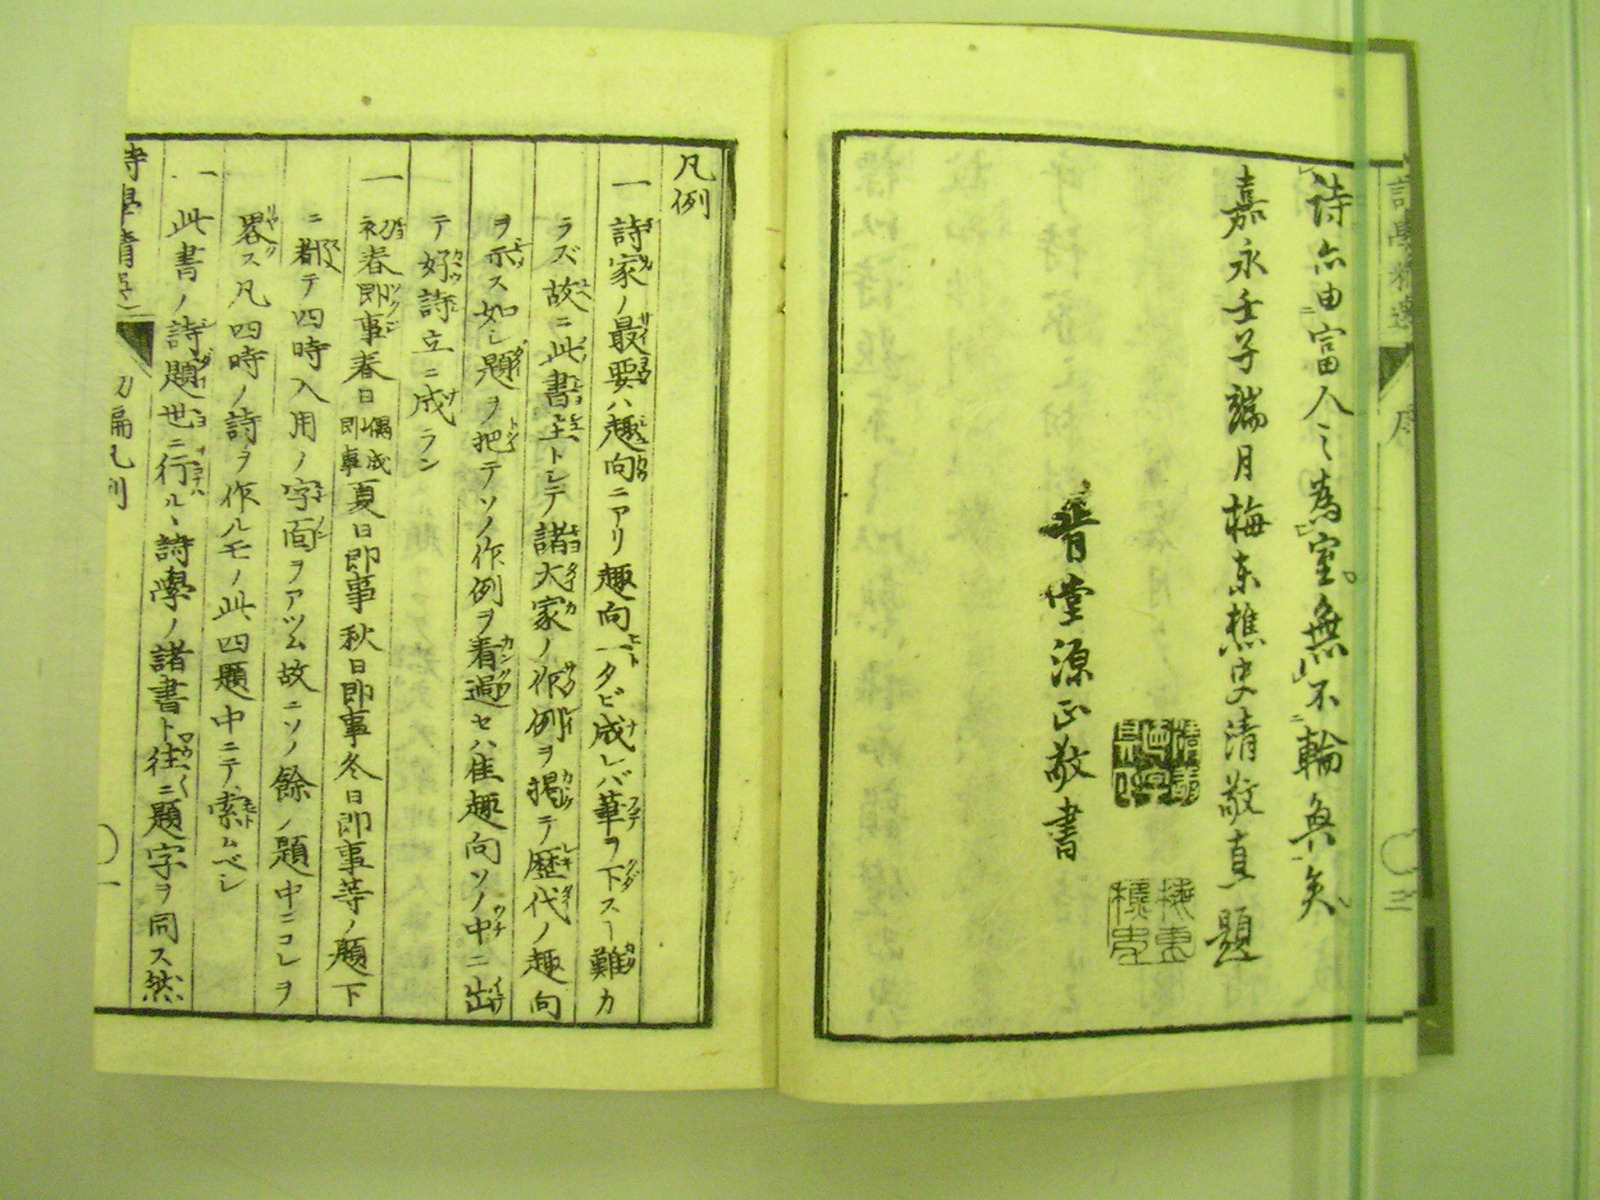 詩亦由富人之為室無不輪奐矣
嘉永壬子端月梅東樵史清敬直題
源正敬書
序
三
凡例
一 詩家ノ最要ハ趣向ニアリ趣向一タビ成レバ筆ヲ下スヿ難カ
ラズ故ニ此書主トシテ諸大家ノ作例ヲ掲テ歴代ノ趣向
ヲ示ス如シ題ヲ把テソノ作例ヲ看過セハ佳趣向ソノ中ニ出
テ好詩立ニ成ラン
一 初春即事春日偶成即事夏日即事秋日即事冬日即事等ノ題下
ニ都テ四時入用ノ字面ヲアツム故ニソノ餘ノ題中ニコレヲ
畧ス凡四時ノ詩ヲ作ルモノ此四題中ニテ索ムベシ
一 此書ノ詩題世ニ行ルヽ詩學ノ諸書ト往〱ニ題字ヲ同ス然
詩學精選
初編凡例
一